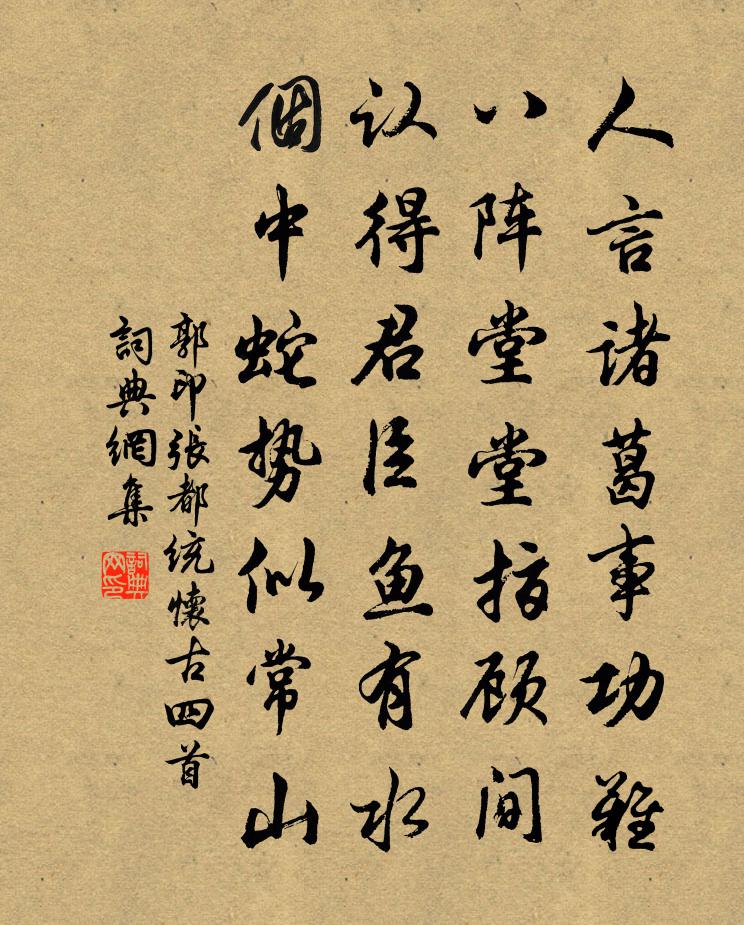 人言诸葛事功难
八阵堂堂指顾间
认得君臣鱼有水
個中蛇势似常山
郭印張都統懷古四首
詞典網集
詞典网印